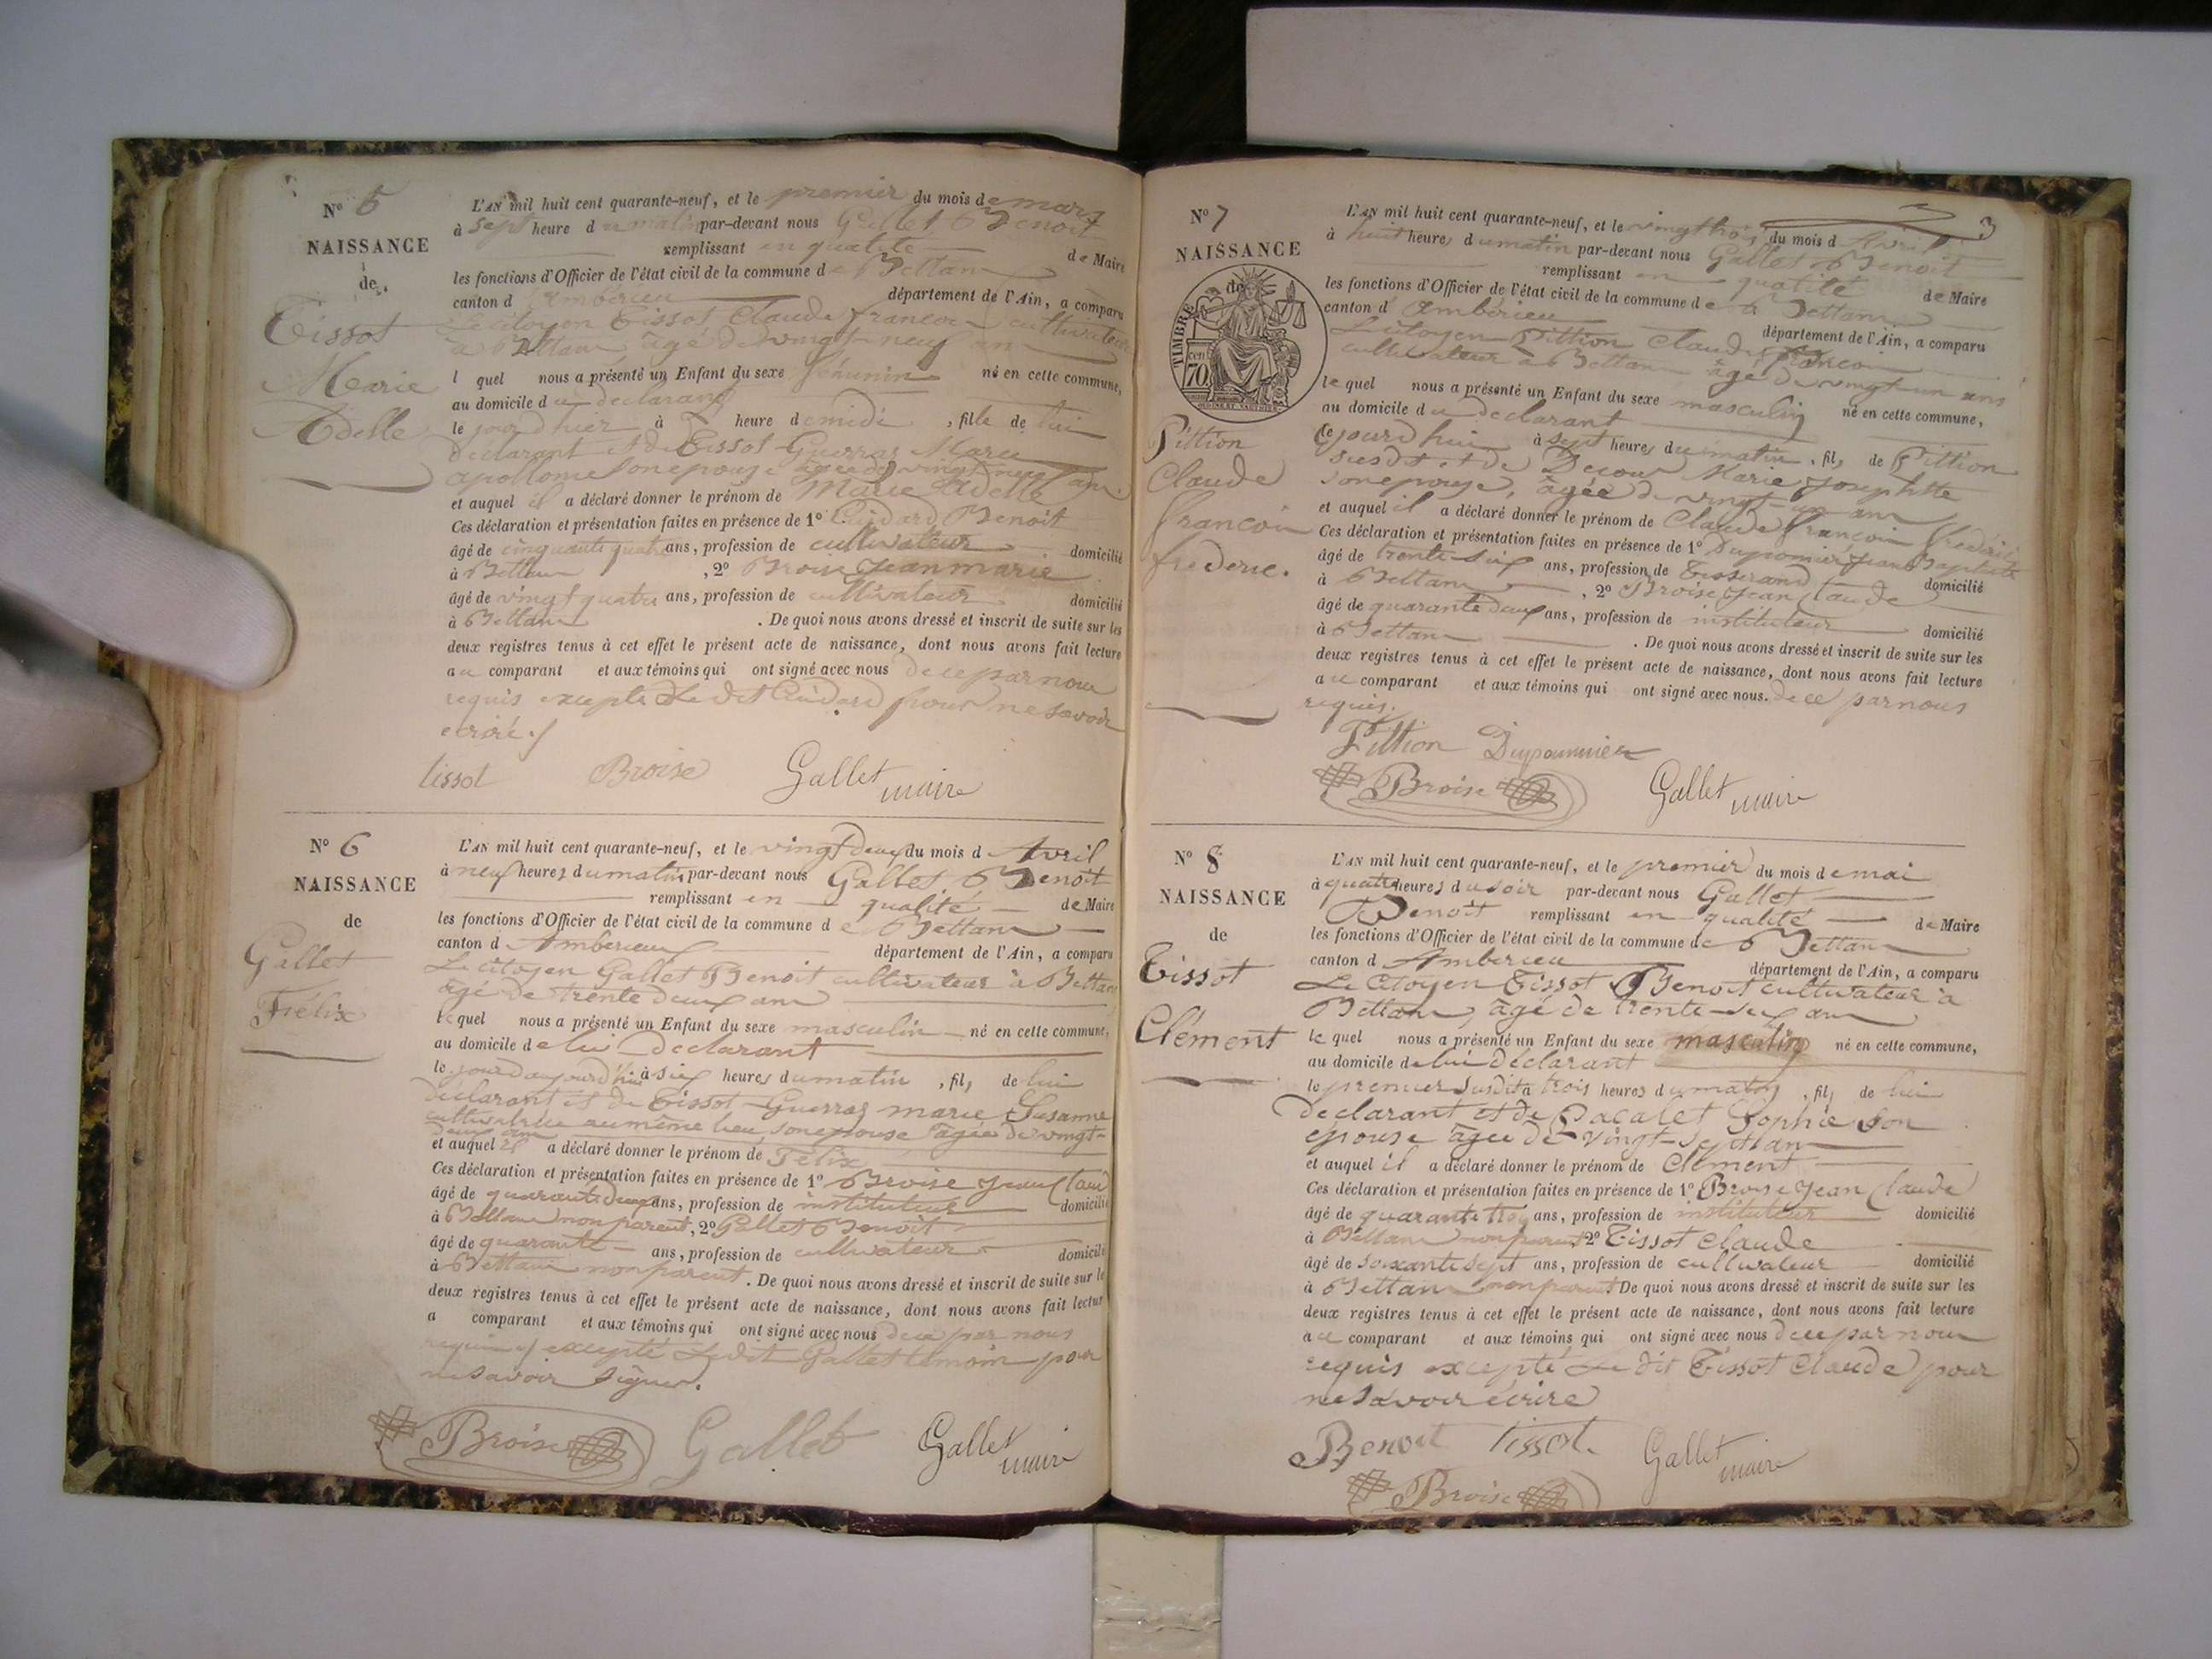 N° 5
NAISSANCE
de
Tissot
Marie
Adelle
L'AN mil huit cent quarante-neuf, et le premier du mois de mars
à sept heure du matin par-devant nous Gallet Benoit
remplissant en qualité de Maire
les fonctions d'Officier de l'état civil de la commune de Bettant
canton d'Ambérieu département de l'Ain, a comparu
Le citoyen Tissot Claude françois cultivateur
à Bettant âgé de vingt-neuf ans
l quel nous a présenté un Enfant du sexe féminin né en cette commune,
au domicile du déclarant
le jour d'hier à heure de midi, fille de lui
déclarant et de Tissot-Guerraz Marie
apollonie son épouse âgée de vingt neuf ans
et auquel il a déclaré donner le prénom de Marie Adelle
Ces déclaration et présentation faites en présence de 1° Benoit
âgé de cinquante quatre ans, profession de cultivateur domicilié
à Bettant, 2° Broise Jean marie
âgé de vingt quatre ans, profession de cultivateur domicilié
à Bettant. De quoi nous avons dressé et inscrit de suite sur les
deux registres tenus à cet effet le présent acte de naissance, dont nous avons fait lecture
au comparant et aux témoins qui ont signé avec nous de ce par nous
requis excepté Le dit pour ne savoir
écrire./
tissot Broise Gallet maire
N° 6
NAISSANCE
de
Gallet
Félix
L'AN mil huit cent quarante-neuf, et le vingt deux du mois d Avril
à neuf heures du matin par-devant nous Gallet Benoit
remplissant en qualité de Maire
les fonctions d'Officier de l'état civil de la commune de Bettant
canton d Amberieux département de l'Ain, a comparu
Le citoyen Gallet Benoit cultivateur à Bettant
âgé de trente deux ans
lequel nous a présenté un Enfant du sexe masculin né en cette commune,
au domicile de lui déclarant
le jour d'aujourd'hui à six heures du matin, fils de lui
déclarant et de Tissot-Guerraz marie Susanne
cultivatrice au même lieu, son épouse âgée de vingt-
deux ans
et auquel il a déclaré donner le prénom de Félix
Ces déclaration et présentation faites en présence de 1° Broise Jean Claude
âgé de quarante deux ans, profession de instituteur domicilié
à Bettant non parent, 2° Gallet Benoit
âgé de quarante ans, profession de cultivateur domicilié
à Bettant non parent. De quoi nous avons dressé et inscrit de suite sur les
deux registres tenus à cet effet le présent acte de naissance, dont nous avons fait lecture
a comparant et aux témoins qui ont signé avec nous de ce par nous
requis excepté Ledit Gallet témoin pour
ne savoir signer.
Broise Gallet Gallet maire
3
N° 7
NAISSANCE
de
TIMBRE
cent
70
Pittion
Claude
francois
frederic.
L'AN mil huit cent quarante-neuf, et le vingt trois du mois d Avril
à huit heures du matin par-devant nous Gallet Benoit
remplissant en qualité de Maire
les fonctions d'Officier de l'état civil de la commune de Bettant
canton d'Ambérieu département de l'Ain, a comparu
Le citoyen Pittion Claude françois
cultivateur à Bettant âgé de vingt un ans
le quel nous a présenté un Enfant du sexe masculin né en cette commune,
au domicile du déclarant
Cejourd'hui à sept heures du matin, fils de Pittion
susdit et de Marie Josephte
son épouse, âgée de vingt-un ans
et auquel il a déclaré donner le prénom de Claude francois frédéric
Ces déclaration et présentation faites en présence de 1° Dupommier Jean Baptiste
âgé de trente-six ans, profession de Tisserand domicilié
à Bettant, 2° Broise Jean Claude
âgé de quarante deux ans, profession de instituteur domicilié
à Bettant. De quoi nous avons dressé et inscrit de suite sur les
deux registres tenus à cet effet le présent acte de naissance, dont nous avons fait lecture
au comparant et aux témoins qui ont signé avec nous. de ce par nous
requis.
Pittion Dupommier
Broise Gallet maire
N° 8
NAISSANCE
de
Tissot
Clément
L'AN mil huit cent quarante-neuf, et le premier du mois de mai
à quatre heures du soir par-devant nous Gallet
Benoit remplissant en qualité de Maire
les fonctions d'Officier de l'état civil de la commune de Bettant
canton d Amberieu département de l'Ain, a comparu
Le Citoyen Tissot Benoit cultivateur à
Bettant, âgé de trente-six ans
le quel nous a présenté un Enfant du sexe masculin né en cette commune,
au domicile de lui déclarant
le premier susdit à trois heures du matin, fils de lui
déclarant et de Pacalet Sophie son
épouse âgée de vingt-sept ans
et auquel il a déclaré donner le prénom de Clément
Ces déclaration et présentation faites en présence de 1° Broise Jean Claude
âgé de quarante trois ans, profession de instituteur domicilié
à Bettant non parent 2° Tissot Claude
âgé de soixante sept ans, profession de cultivateur domicilié
à Bettant non parent De quoi nous avons dressé et inscrit de suite sur les
deux registres tenus à cet effet le présent acte de naissance, dont nous avons fait lecture
au comparant et aux témoins qui ont signé avec nous de ce par nous
requis excepté Le dit Tissot Claude pour
ne savoir écrire
Benoit tissot. Gallet maire
Broise